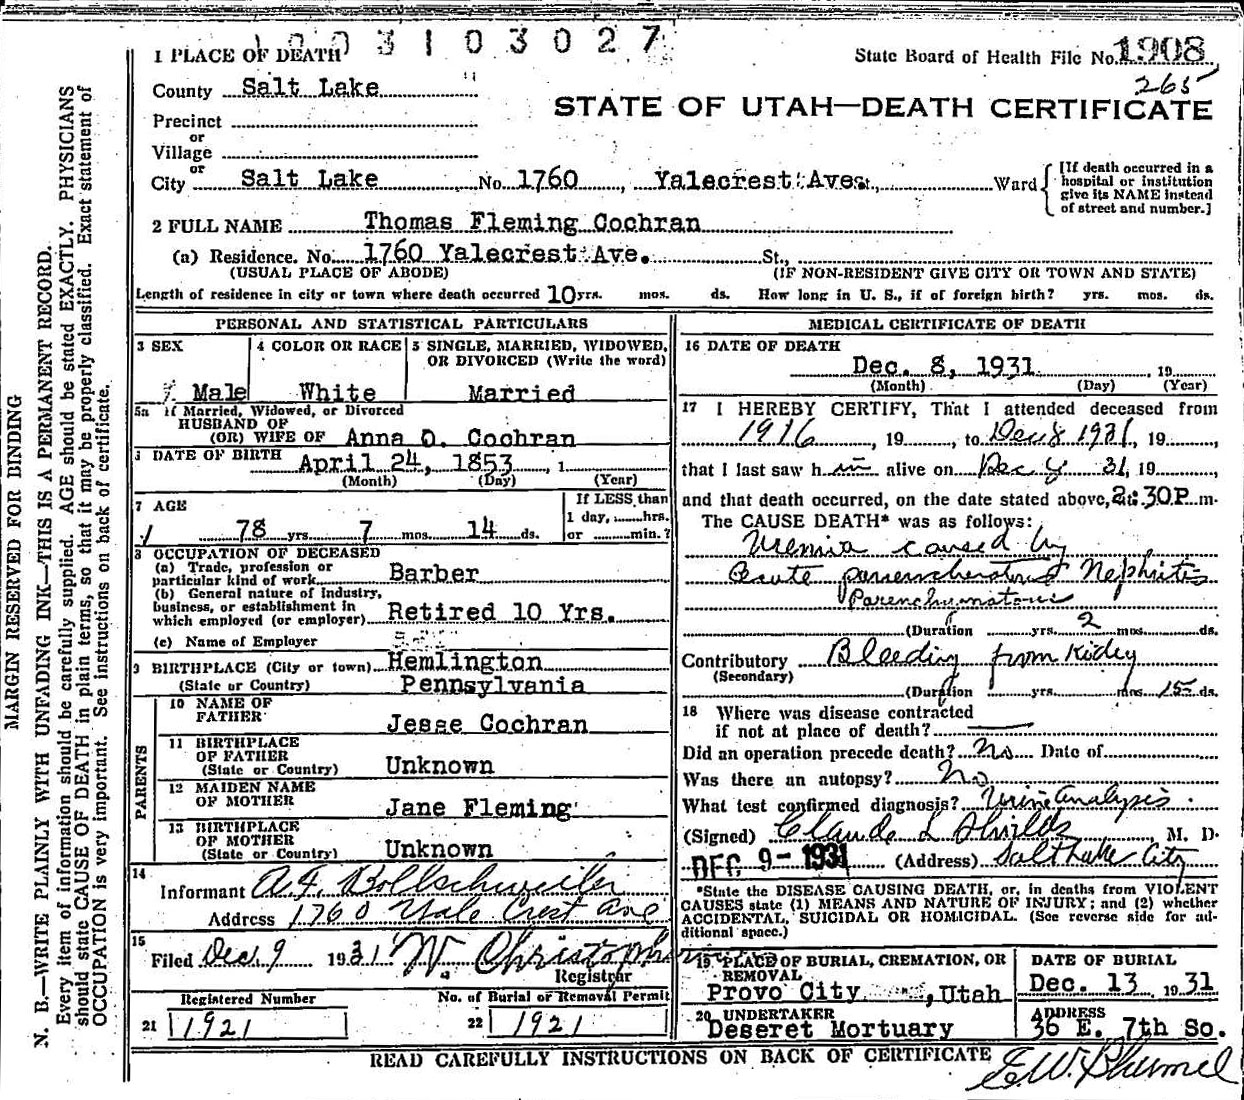 1 0 0 3 1 0 3 0 2 7
1 PLACE OF DEATH
State Board of Health File No. 1908
265
County Salt Lake
STATE OF UTAH—DEATH CERTIFICATE
Precinct
or
Village
or
City Salt Lake No. 1760, Yalecrest Ave. St., Ward
[If death occurred in a hospital or institution give its NAME instead of street and number.]
2 FULL NAME Thomas Fleming Cochran
(a) Residence. No. 1760 Yalecrest Ave. St.,
(USUAL PLACE OF ABODE) (IF NON-RESIDENT GIVE CITY OR TOWN AND STATE)
Length of residence in city or town where death occurred 10 yrs. mos. ds. How long in U. S., if of foreign birth? yrs. mos. ds.
PERSONAL AND STATISTICAL PARTICULARS
3 SEX
Male
4 COLOR OR RACE
White
5 SINGLE, MARRIED, WIDOWED,
OR DIVORCED (Write the word)
Married
5a If Married, Widowed, or Divorced
HUSBAND OF
(OR) WIFE OF Anna O. Cochran
DATE OF BIRTH April 24, 1853, 1
(Month) (Day) (Year)
7 AGE
78 yrs. 7 mos. 14 ds.
If LESS than
1 day, hrs.
or min.?
8 OCCUPATION OF DECEASED
(a) Trade, profession or
particular kind of work Barber
(b) General nature of Industry,
business, or establishment in
which employed (or employer) Retired 10 Yrs.
(c) Name of Employer
9 BIRTHPLACE (City or town) Hemlington
(State or Country) Pennsylvania
PARENTS
10 NAME OF
FATHER Jesse Cochran
11 BIRTHPLACE
OF FATHER
(State or Country) Unknown
12 MAIDEN NAME
OF MOTHER Jane Fleming
13 BIRTHPLACE
OF MOTHER
(State or Country) Unknown
14
Informant A. F. Bollschweiler
Address 1760 Yale Crest Ave
15
Filed Dec. 9 1931 W Christopherson
Registrar
Registered Number
21 1921
No. of Burial or Removal Permit
22 1921
MEDICAL CERTIFICATE OF DEATH
16 DATE OF DEATH
Dec. 8, 1931, 19
(Month) (Day) (Year)
17 I HEREBY CERTIFY, That I attended deceased from
1916, 19 to Dec 8 1931, 19,
that I last saw him alive on Dec 31, 19,
and that death occurred, on the date stated above, at 2:30P m.
The CAUSE DEATH* was as follows:
Uremia caused by
Acute Nephritis
Parenchymatous
(Duration yrs. 2 mos. ds.
Contributory Bleeding from Kidney
(Secondary)
(Duration yrs. mos. 15 ds.
18 Where was disease contracted
if not at place of death?
Did an operation precede death? No Date of
Was there an autopsy? No
What test confirmed diagnosis? Urine analysis.
(Signed) Claude L Shields M. D.
DEC 9-1931 (Address) Salt Lake City
*State the DISEASE CAUSING DEATH, or, in deaths from VIOLENT
CAUSES state (1) MEANS AND NATURE OF INJURY; and (2) whether
ACCIDENTAL, SUICIDAL OR HOMICIDAL. (See reverse side for additional space.)
19 PLACE OF BURIAL, CREMATION, OR
REMOVAL
Provo City, Utah
DATE OF BURIAL
Dec. 13, 1931
20 UNDERTAKER
Deseret Mortuary
ADDRESS
36 E. 7th So.
READ CAREFULLY INSTRUCTIONS ON BACK OF CERTIFICATE
MARGIN RESERVED FOR BINDING
N. B.—WRITE PLAINLY WITH UNFADING INK—THIS IS A PERMANENT RECORD.
Every item of information should be carefully supplied. AGE should be stated EXACTLY. PHYSICIANS
should state CAUSE OF DEATH in plain terms, so that it may be properly classified. Exact statement of
OCCUPATION is very important. See instructions on back of certificate.